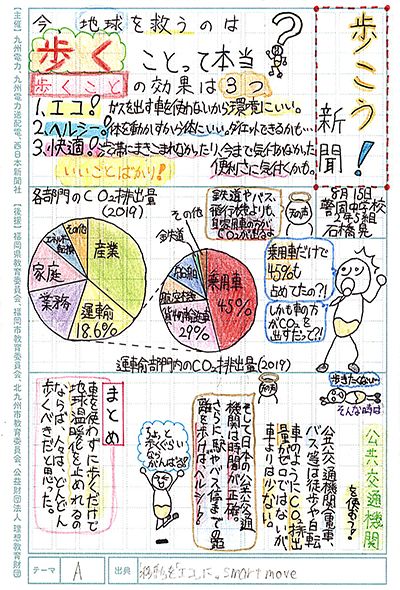 歩こう!
新聞
8月15日
2年5組
今、地球を救うのは
歩くことって本当?
歩くことの効果は3つ
1.エコ!ガスを出す車を使わないから環境にいい。
2.ヘルシー!体を動かすから体にいい。ダイエットできるかも…
3.快適!渋滞にまきこまれなかったり、今まで気付かなかった
便利さに気付くかも。
いいことばかり!
各部門のCO2排出量
(2019)
産業
運輸
18.6%
業務
家庭
エネルギー転換
その他
鉄道や バス、
飛行機よりも、
自家用車の方が
CO2が出るよ
天の声
その他
鉄道
船舶
航空
貨物自動車
29%
乗用車
45%
運輸部門内のCO2排出量(2019)
乗用車だけで
45%も
占めてたの?!
しかも車の方が
CO2を
出すだって?!
歩きたくない~
そんな時は
公共交通機関
を使おう!
公共交通機関(電車、
バス等)は徒歩や自転
車のようにCO2排出
量がゼロではないが
車よりは少ない。
天の声
そして日本の公共交通
機関は時間が正確。
さらに駅やバス停までの距
離を歩けば、ヘルシー!
ちょっと
歩くぐらい
ならがんばる!
まとめ
車を使わずに歩くだけで
地球温暖化を止めれるの
ならば、人々はどんどん
歩くべきだと思った。
テーマ A 出典 移動を「エコ」に。smart move
【主催】九州電力、九州電力送配電、西日本新聞社 【後援】福岡県教育委員会、福岡市教育委員会、北九州市教育委員会、公益財団法人 理想教育財団